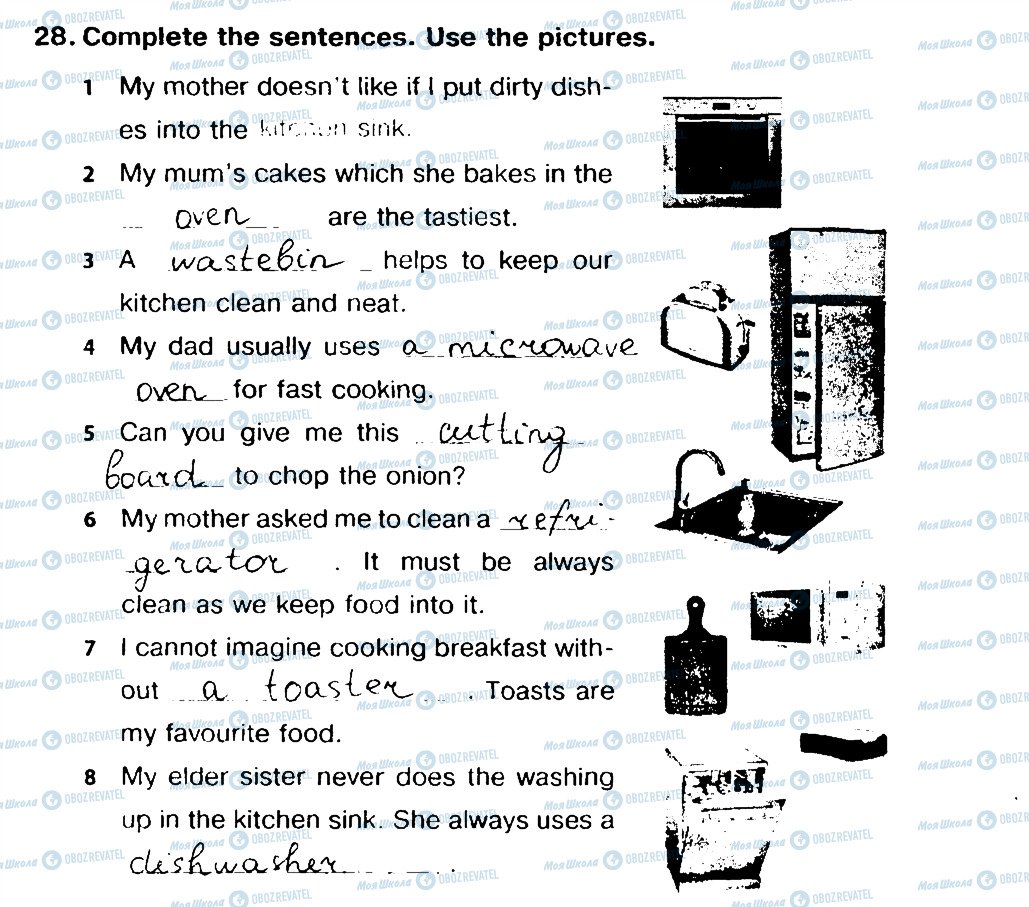 28. Complete the sentences. Use the pictures.
1 My mother doesn't like if I put dirty dish-
es into the kitchen sink.
2 My mum's cakes which she bakes in the
oven are the tastiest.
3 A wastebin helps to keep our
kitchen clean and neat.
4 My dad usually uses a microwave
oven for fast cooking.
5 Can you give me this cutting
board to chop the onion?
6 My mother asked me to clean a refri-
gerator . It must be always
clean as we keep food into it.
7 I cannot imagine cooking breakfast with-
out a toaster . Toasts are
my favourite food.
8 My elder sister never does the washing
up in the kitchen sink. She always uses a
dishwasher .
МояШкола OBOZREVATEL